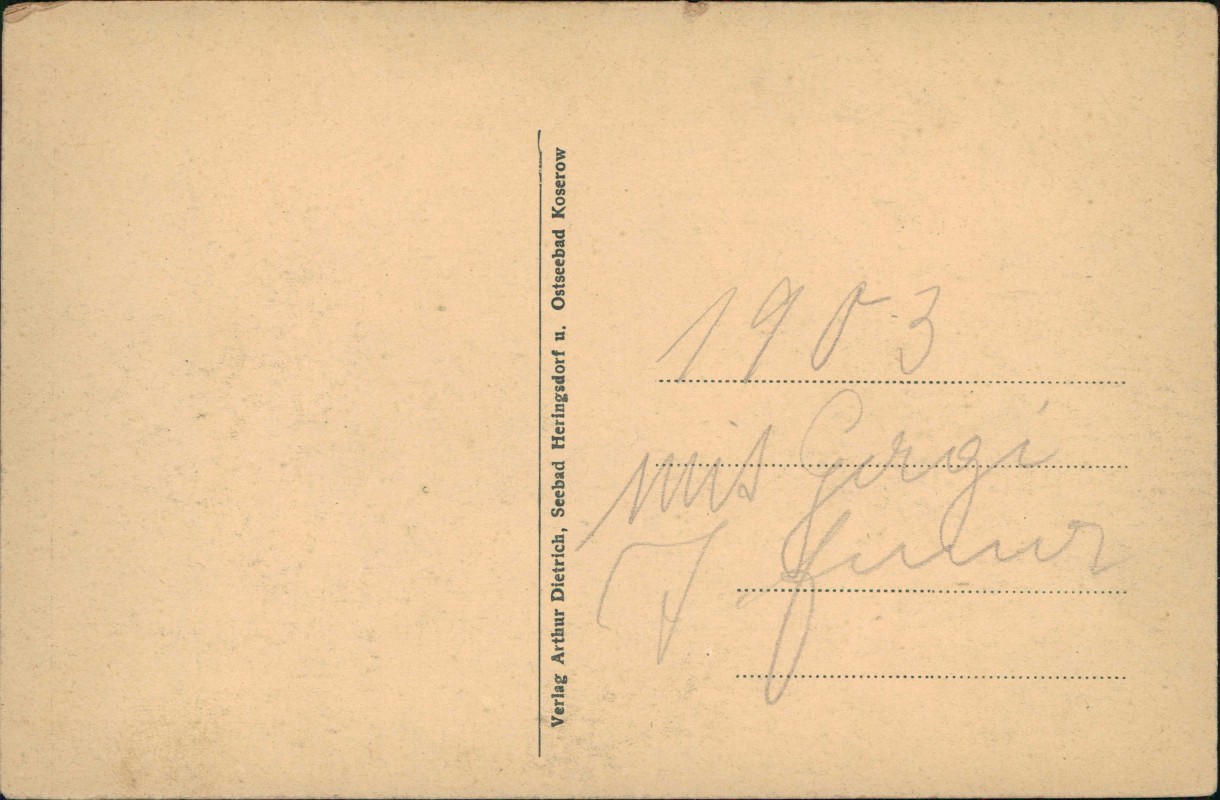 Verlag Arthur Dietrich, Seebad Heringsdorf u. Ostseebad Koserow
1903
mit
7.